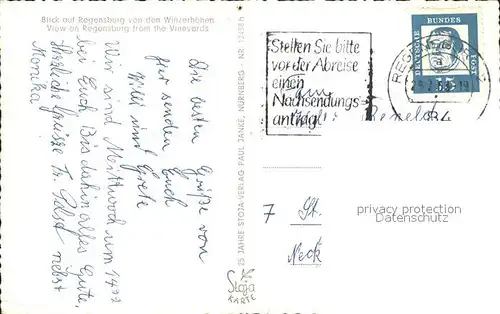 Blick auf Regensburg von den Winzerhöhen
View on Regensburg from the Vineyards
Die besten Grüße von
hier senden Euch
Willi und Grete
Wir sind Mittwoch um 14 22
bei Euch. Bis dahin alles Gute,
Herzliche Grüsse Fr. nebst
Monika
25 JAHRE STOJA-VERLAG PAUL JANKE, NÜRNBERG - NR
Stoja
KARTE
Stellen Sie bitte
vor der Abreise
einen
Nachsendungs=
antrag!
DEUTSCHE
BUNDES
POST
15
7 St.
Neck
privacy protection
Datenschutz